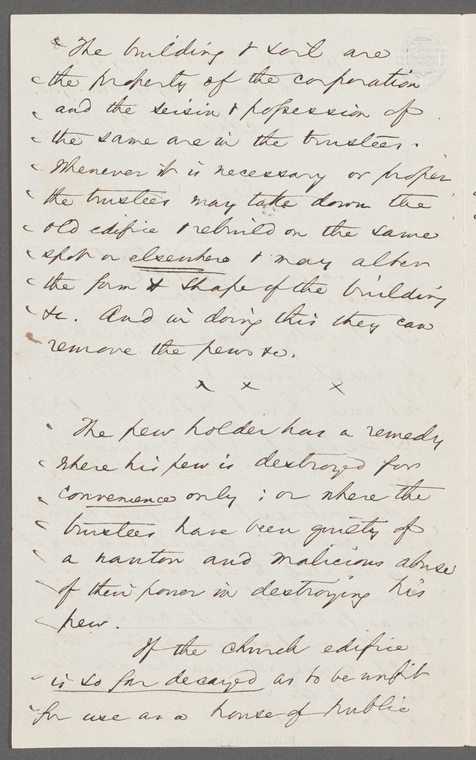 "The building & soil are
" the property of the corporation
" and the seisin & possession of
" the same are in the trustees.
" Whenever it is necessary or proper
" the trustees may take down the
" old edifice & rebuild on the same
" spot or elsewhere & may alter
" the form & shape of the building
" &c. And in doing this they can
" remove the pews &c.
x x x
" The pew holder has a remedy
" where his pew is destroyed for
" convenience only ; or where the
" trustees have been guilty of
" a wanton and malicious abuse
" of their power in destroying his
" pew.
If the church edifice
" is so far decayed as to be unfit
" for use as a house of public